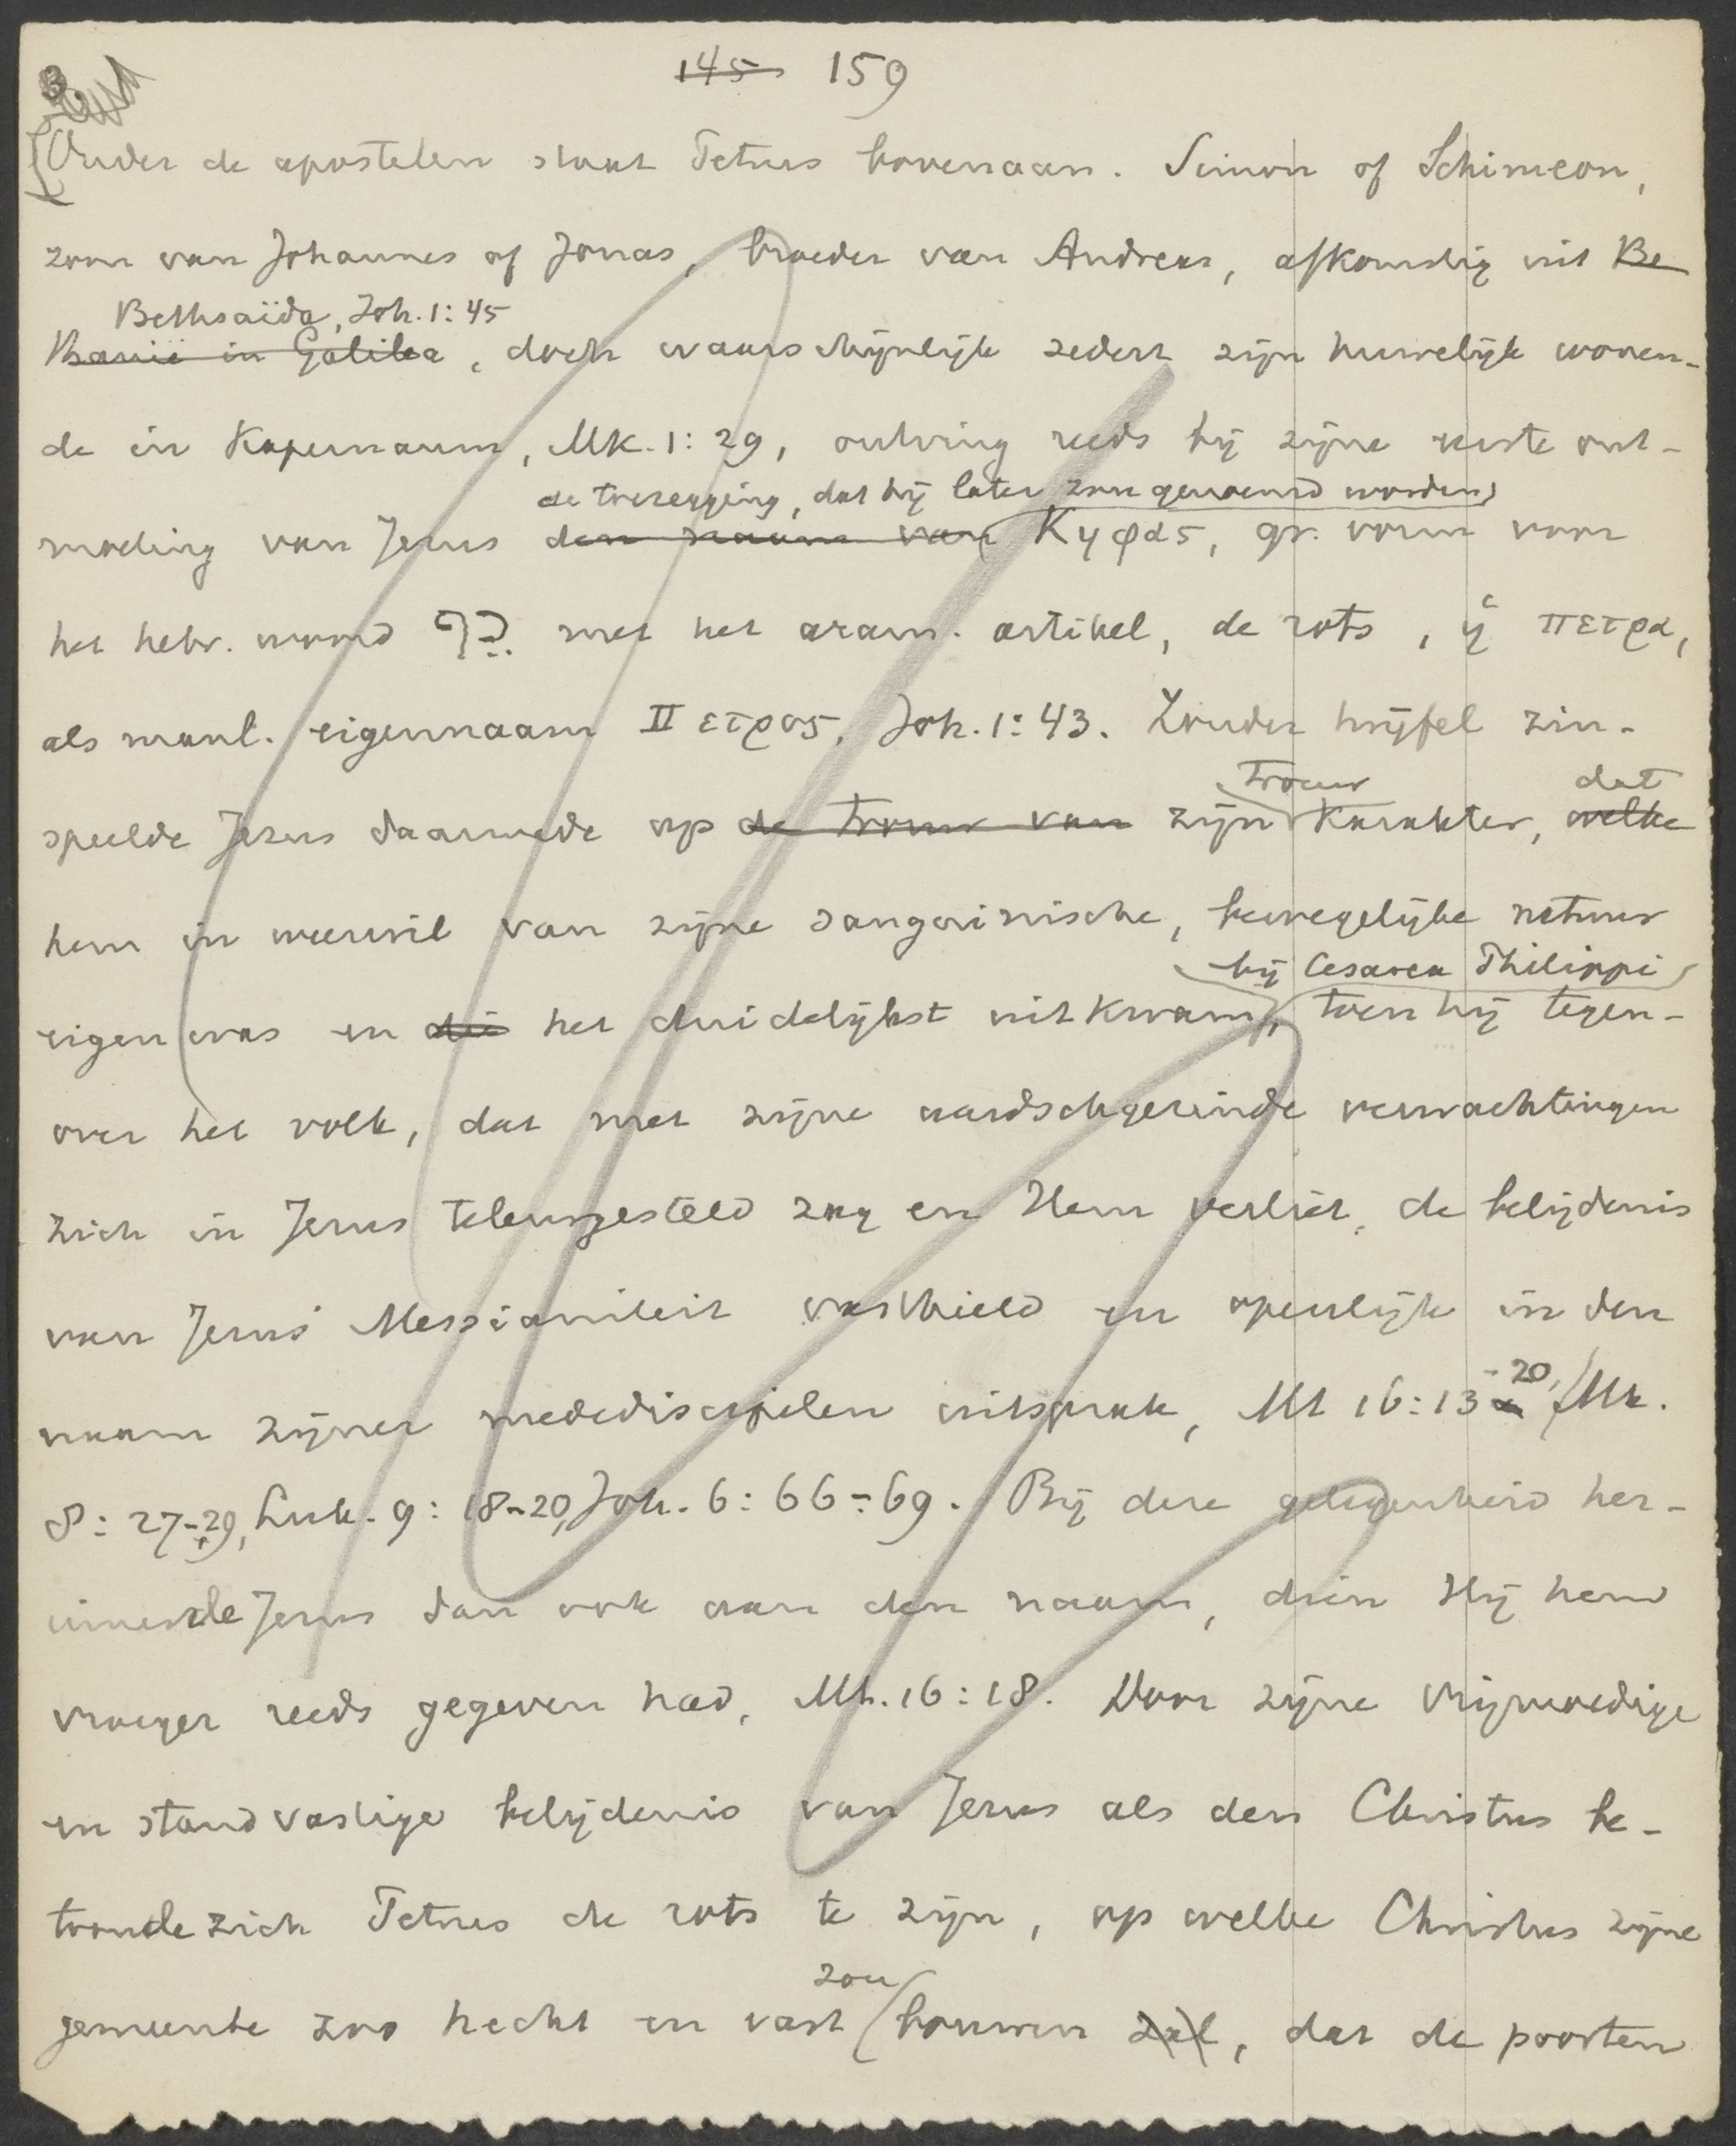 145 159
3.
Onder de apostelen staat Petrus bovenaan. Simon of Schimeon,
zoon van Johannes of Jonas, broeder van Andreas, afkomstig uit Be
Bethsaïda, Joh. 1:45
in Galilea, doch waarschijnlijk sedert zijn huwelijk wonen-
de in Kapernaum, Mk. 1:29, ontving reeds bij zijne eerste ont-
de toezegging, dat hij later zou genoemd worden
moeting van Jezus den naam van Κηφας, gr. vorm voor
het hebr. woord כֵּף met het aram. artikel, de rots, ἡ πετρα,
als manl. eigennaam Πετρος, Joh. 1:43. Zonder twijfel zin-
trouw dat
speelde Jezus daarmede op de trouw van zijn karakter, welke
hem in weerwil van zijne sanguinische, bewegelijke natuur
bij Cesarea Philippi
eigen was en die het duidelijkst uitkwam, toen hij tegen-
over het volk, dat met zijne aardschgezinde verwachtingen
zich in Jezus teleurgesteld zag en Hem verliet, de belijdenis
van Jezus' Messianiteit vasthield en openlijk in den
naam zijner mededisciplen uitsprak, Mt 16:13-20, Mk.
8:27-29, Luk. 9:18-20, Joh. 6:66-69. Bij deze gelegenheid her-
innerde Jezus dan ook aan den naam, dien Hij hem
vroeger reeds gegeven had, Mt. 16:18. Door zijne vrijmoedige
en standvastige belijdenis van Jezus als den Christus be-
toonde zich Petrus de rots te zijn, op welke Christus zijne
zou
gemeente zoo hecht en vast bouwen zal, dat de poorten